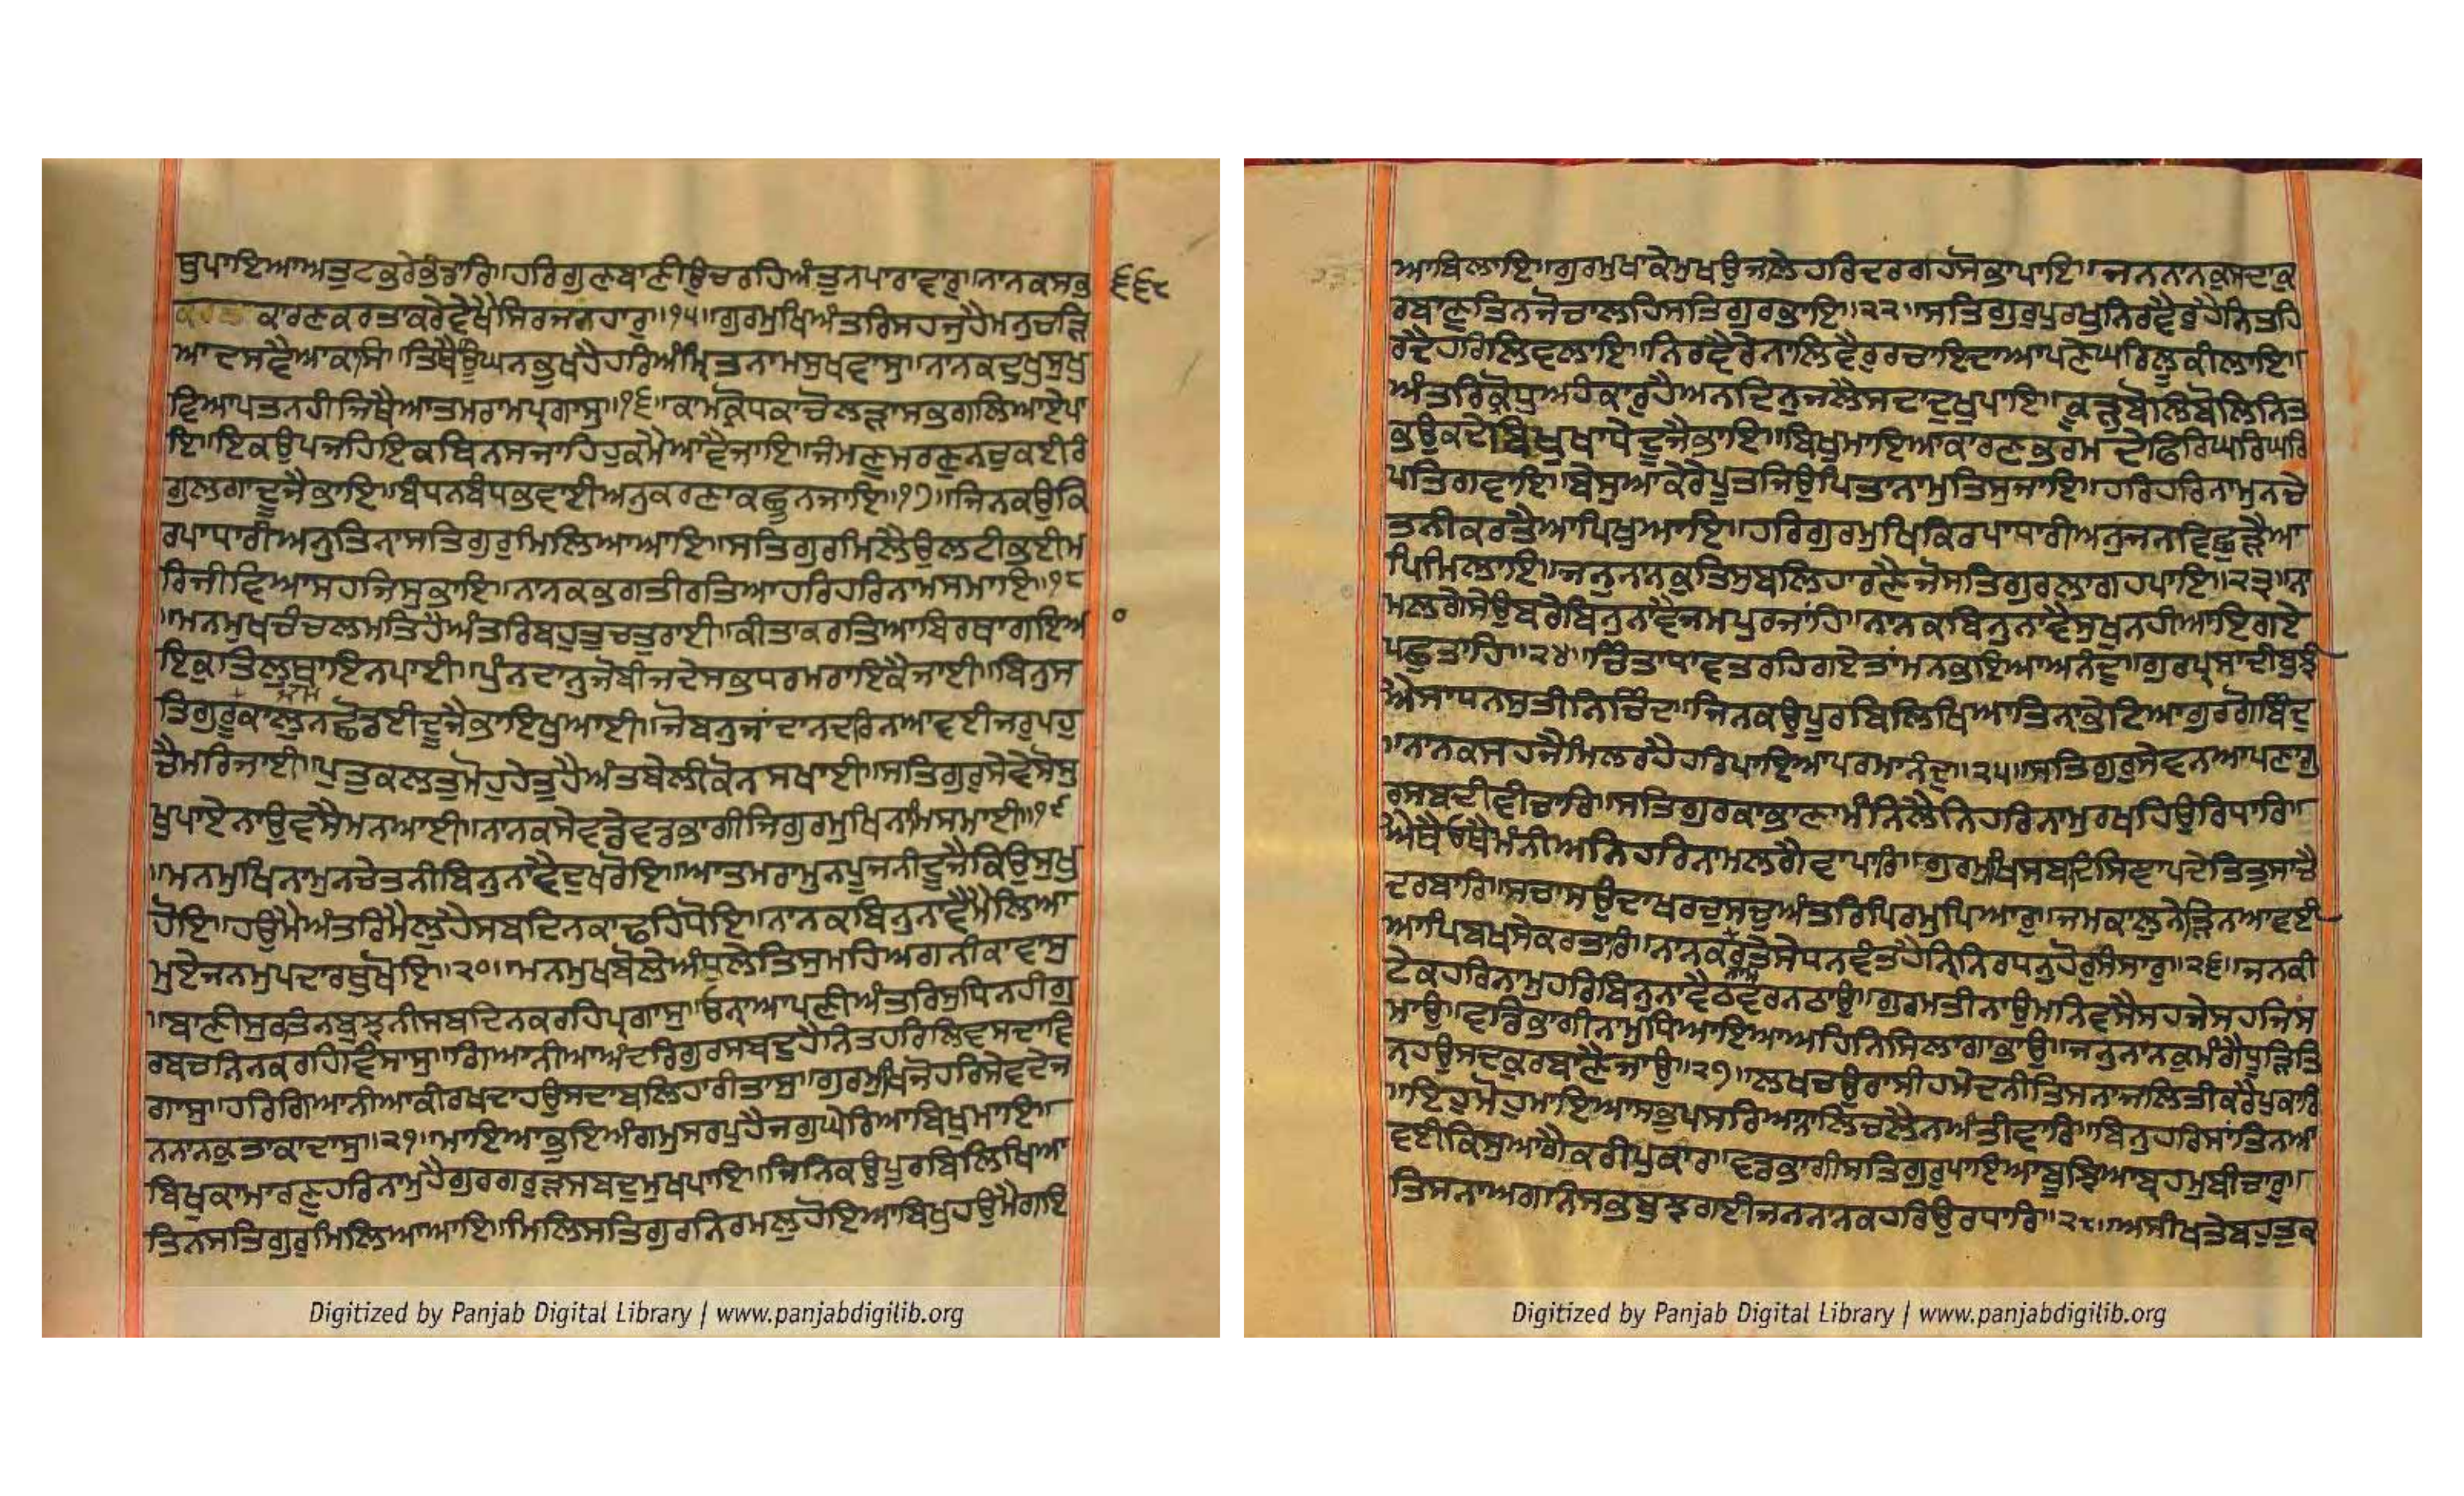 ਬੁਪਾਇਆਅਤੁਟਭਰੇਭੰਡਾਰਿ॥ਹਰਿਗੁਣਬਾਣੀਉਚਰਹਿਅੰਤੁਨਪਾਰਾਵਾਰੁ॥ਨਾਨਕਸਭ ੬੬੯
ਕਾਰਣਕਰਤਾਕਰੇਵੇਖੈਸਿਰਜਨਹਾਰੁ॥੧੫॥ਗੁਰਮੁਖਿਅੰਤਰਿਸਹਜੁਹੈਮਨੁਚੜਿ
ਆਦਸਵੈਆਕਾਸਿ॥ਤਿਥੈਊਂਘਨਭੁਖਹੈਹਰਿਅੰਮ੍ਰਿਤਨਾਮਸੁਖਵਾਸੁ॥ਨਾਨਕਦੁਖੁਸੁਖੁ
ਵਿਆਪਤਨਹੀਜਿਥੈਆਤਮਰਾਮਪ੍ਰਗਾਸੁ॥੧੬॥ਕਾਮਕ੍ਰੋਧਕਾਚੋਲੜਾਸਭਗਲਿਆਏਪਾ
ਇ॥ਇਕਉਪਜਹਿਇਕਬਿਨਸਜਾਹਿਹੁਕਮੈਆਵੈਜਾਇ॥ਜੰਮਣੁਮਰਣੁਨਚੁਕਈਰੰ
ਗੁਲਗਾਦੂਜੈਭਾਇ॥ਬੰਧਨਬੰਧਿਭਵਾਈਅਨੁਕਰਣਾਕਛੂਨਜਾਇ॥੧੭॥ਜਿਨਕਉਕਿ
ਰਪਾਧਾਰੀਅਨੁਤਿਨਾਸਤਿਗੁਰੁਮਿਲਿਆਆਇ॥ਸਤਿਗੁਰਮਿਲੈਉਲਟੀਭਈਮ
ਰਿਜੀਵਿਆਸਹਜਿਸੁਭਾਇ॥ਨਾਨਕਭਗਤੀਰਤਿਆਹਰਿਹਰਿਨਾਮਸਮਾਇ॥੧੮
॥ਮਨਮੁਖਚੰਚਲਮਤਿਹੈਅੰਤਰਿਬਹੁਤੁਚਤੁਰਾਈ॥ਕੀਤਾਕਰਤਿਆਬਿਰਥਾਗਇਆ
ਇਕੁਤਿਲੁਥਾਇਨਪਾਈ॥ਪੁੰਨਦਾਨੁਜੋਬੀਜਦੇਸਭਧਰਮਰਾਇਕੈਜਾਈ॥ਬਿਨੁਸ
ਤਿਗੁਰੂਕਾਲੁਨਛੋਡਈਦੂਜੈਭਾਇਖੁਆਈ॥ਜੋਬਨੁਜਾਂਦਾਨਦਰਿਨਆਵਈਜਰੁਪਹੁ
ਚੈਮਰਿਜਾਈ॥ਪੁਤੁਕਲਤੁਮੋਹੁਹੇਤੁਹੈਅੰਤਬੇਲੀਕੋਨਸਖਾਈ॥ਸਤਿਗੁਰੁਸੇਵੇਸੋਸੁ
ਖੁਪਾਏਨਾਉਵਸੈਮਨਆਈ॥ਨਾਨਕਸੇਵਡੇਵਡਭਾਗੀਜਿਗੁਰਮੁਖਿਨਾਮਿਸਮਾਈ॥੧੯
॥ਮਨਮੁਖਿਨਾਮੁਨਚੇਤਨੀਬਿਨੁਨਾਵੈਦੁਖਰੋਇ॥ਆਤਮਰਾਮੁਨਪੂਜਨੀਦੂਜੈਕਿਉਸੁਖੁ
ਹੋਇ॥ਹਉਮੈਅੰਤਰਿਮੈਲੁਹੈਸਬਦਿਨਕਾਢਹਿਧੋਇ॥ਨਾਨਕਬਿਨੁਨਾਵੈਮੈਲਿਆ
ਮੁਏਜਨਮੁਪਦਾਰਥੁਖੋਇ॥੨੦॥ਮਨਮੁਖਬੋਲੇਅੰਧੁਲੇਤਿਸੁਮਹਿਅਗਨੀਕਾਵਾਸੁ
॥ਬਾਣੀਸੁਰਤਿਨਬੁਝਨੀਸਬਦਿਨਕਰਹਿਪ੍ਰਗਾਸੁ॥ਓਨਾਆਪਣੀਅੰਤਰਿਸੁਧਿਨਹੀਗੁ
ਰਬਚਨਿਨਕਰਹਿਵਿਸਾਸੁ॥ਗਿਆਨੀਆਅੰਦਰਿਗੁਰਸਬਦੁਹੈਨਿਤਹਰਿਲਿਵਸਦਾਵਿ
ਗਾਸੁ॥ਹਰਿਗਿਆਨੀਆਕੀਰਖਦਾਹਉਸਦਾਬਲਿਹਾਰੀਤਾਸੁ॥ਗੁਰਮੁਖਿਜੋਹਰਿਸੇਵਦੇਜ
ਨਨਾਨਕੁਤਾਕਾਦਾਸੁ॥੨੧॥ਮਾਇਆਭੁਇਅੰਗਮੁਸਰਪੁਹੈਜਗੁਘੇਰਿਆਬਿਖੁਮਾਇ॥
ਬਿਖੁਕਾਮਾਰਣੁਹਰਿਨਾਮੁਹੈਗੁਰਗਰੁੜਸਬਦੁਮੁਖਪਾਇ॥ਜਿਨਕਉਪੂਰਬਿਲਿਖਿਆ
ਤਿਨਸਤਿਗੁਰੁਮਿਲਿਆਆਇ॥ਮਿਲਿਸਤਿਗੁਰਨਿਰਮਲੁਹੋਇਆਬਿਖੁਹਉਮੈਗਇ
Digitized by Panjab Digital Library | www.panjabdigilib.org
ਆਬਿਲਾਇ॥ਗੁਰਮੁਖਾਕੇਮੁਖਉਜਲੇਹਰਿਦਰਗਹਸੋਭਾਪਾਇ॥ਜਨਨਾਨਕੁਸਦਾਕੁ
ਰਬਾਣੁਤਿਨਜੋਚਾਲਹਿਸਤਿਗੁਰਭਾਇ॥੨੨॥ਸਤਿਗੁਰਪੁਰਖੁਨਿਰਵੈਰੁਹੈਨਿਤਹਿ
ਰਦੈਹਰਿਲਿਵਲਾਇ॥ਨਿਰਵੈਰੈਨਾਲਿਵੈਰੁਰਚਾਇਦਾਆਪਣੇਘਰਿਲੂਕੀਲਾਇ॥
ਅੰਤਰਿਕ੍ਰੋਧੁਅਹੰਕਾਰੁਹੈਅਨਦਿਨੁਜਲੈਸਦਾਦੁਖੁਪਾਇ॥ਕੂੜੁਬੋਲਿਬੋਲਿਨਿਤ
ਭਉਕਦੇਬਿਖੁਖਾਧੇਦੂਜੈਭਾਇ॥ਬਿਖੁਮਾਇਆਕਾਰਣਭਰਮਦੇਫਿਰਿਘਰਿਘਰਿ
ਪਤਿਗਵਾਇ॥ਬੇਸੁਆਕੇਰੇਪੂਤਜਿਉਪਿਤਾਨਾਮੁਤਿਸੁਜਾਇ॥ਹਰਿਹਰਿਨਾਮੁਨਚੇ
ਤਨੀਕਰਤੈਆਪਿਖੁਆਇ॥ਹਰਿਗੁਰਮੁਖਿਕਿਰਪਾਧਾਰੀਅਨੁਜਨਵਿਛੁੜੇਆ
ਪਿਮਿਲਾਇ॥ਜਨੁਨਾਨਕੁਤਿਸੁਬਲਿਹਾਰਣੈਜੋਸਤਿਗੁਰਲਾਗਹਪਾਇ॥੨੩॥ਨਾ
ਮਲਗੇਸੇਊਬਰੇਬਿਨੁਨਾਵੈਜਮਪੁਰਜਾਂਹਿ॥ਨਾਨਕਬਿਨੁਨਾਵੈਸੁਖੁਨਹੀਆਇਗਏ
ਪਛੁਤਾਹਿ॥੨੪॥ਚਿੰਤਾਧਾਵਤਰਹਿਗਏਤਾਂਮਨਭਇਆਅਨੰਦੁ॥ਗੁਰਪ੍ਰਸਾਦੀਬੁਝੀ
ਐਸਾਧਨਸੁਤੀਨਿਚਿੰਦ॥ਜਿਨਕਉਪੂਰਬਿਲਿਖਿਆਤਿਨਾਭੇਟਿਆਗੁਰਗੋਬਿੰਦੁ
॥ਨਾਨਕਸਹਜੇਮਿਲਰਹੇਹਰਿਪਾਇਆਪਰਮਾਨੰਦੁ॥੨੫॥ਸਤਿਗੁਰੁਸੇਵਨਆਪਣਾਗੁ
ਰਸਬਦੀਵੀਚਾਰਿ॥ਸਤਿਗੁਰਕਾਭਾਣਾਮੰਨਿਲੈਨਿਹਰਿਨਾਮੁਰਖਹਿਉਰਿਧਾਰਿ॥
ਐਥੈਓਥੈਮੰਨੀਅਨਿਹਰਿਨਾਮਲਗੇਵਾਪਾਰਿ॥ਗੁਰਮੁਖਿਸਬਦਿਸਿਞਾਪਦੇਤਿਤੁਸਾਚੈ
ਦਰਬਾਰਿ॥ਸਚਾਸਉਦਾਖਰਚੁਸਚੁਅੰਤਰਿਪਿਰਮੁਪਿਆਰੁ॥ਜਮਕਾਲੁਨੇੜਿਨਆਵਈ
ਆਪਿਬਖਸੇਕਰਤਾਰਿ॥ਨਾਨਕਰਤੇਸੇਧਨਵੰਤਹੈਨਿਨਿਰਧਨੁਹੋਰੁਸੰਸਾਰੁ॥੨੬॥ਜਨਕੀ
ਟੇਕਹਰਿਨਾਮੁਹਰਿਬਿਨੁਨਾਵੈਠਵਰਨਠਾਉ॥ਗੁਰਮਤੀਨਾਉਮਨਿਵਸੈਸਹਜੇਸਹਜਿਸ
ਮਾਉ॥ਵਡਿਭਾਗੀਨਾਮੁਧਿਆਇਆਅਹਿਨਿਸਿਲਾਗਾਭਾਉ॥ਜਨੁਨਾਨਕੁਮੰਗੈਧੂੜਿਤਿ
ਨਹਉਸਦਕੁਰਬਾਣੈਜਾਉ॥੨੭॥ਲਖਚਉਰਾਸੀਹਮੇਦਨੀਤਿਸਨਾਜਲਤੀਕਰੇਪੁਕਾਰ
॥ਇਹੁਮੋਹੁਮਾਇਆਸਭੁਪਸਰਿਆਨਾਲਿਚਲੈਨਾਅੰਤੀਵਾਰਿ॥ਬਿਨੁਹਰਿਸਾਂਤਿਨਆ
ਵਈਕਿਸੁਆਗੈਕਰੀਪੁਕਾਰ॥ਵਡਭਾਗੀਸਤਿਗੁਰੁਪਾਇਆਬੂਝਿਆਬ੍ਰਹਮੁਬੀਚਾਰੁ॥
ਤਿਸਨਾਅਗਨਿਸਭਬੁਝਗਈਜਨਨਾਨਕਹਰਿਉਰਧਾਰਿ॥੨੮॥ਅਸੀਖਤੇਬਹੁਤੁਕ
Digitized by Panjab Digital Library | www.panjabdigilib.org